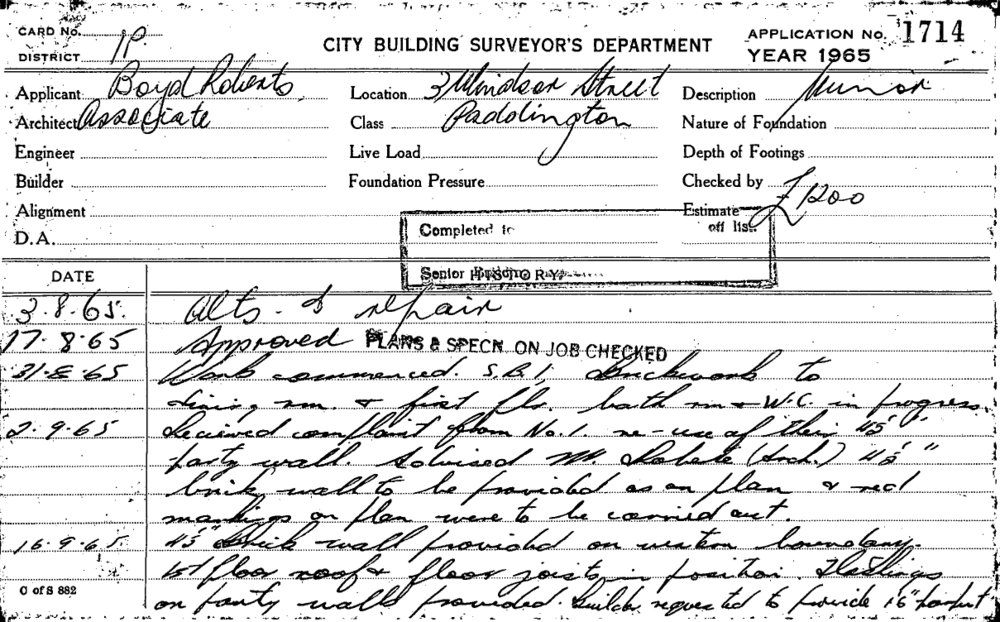 CARD No. 1P. CITY BUILDING SURVEYOR'S DEPARTMENT APPLICATION No. 1714
DISTRICT YEAR 1965
Applicant Boyd Roberts Location 3 Windsor Street Description Minor
Architect Associate Class Paddington Nature of Foundation
Engineer Live Load Depth of Footings
Builder Foundation Pressure Checked by
Alignment Estimate £1200
D.A. Completed to off list.
Senior
HISTORY
DATE
3.8.65. Alts. & repair
17.8.65 Approved PLANS & SPECN. ON JOB CHECKED
31.8.65 Work commenced. S.B.1, Brickwork to
dining rm. & first flr. bath rm & W.C. in progress.
2.9.65 Received complaint from No. 1. re-use of their 4½"
party wall. Advised Mr. Roberts (Arch.) 4½"
brick wall to be provided as on plan & red
markings on plan were to be carried out
16.9.65. 4½" Brick wall provided on western boundary.
1st floor roof & floor joists in position. Flashings
on party walls provided. Builder requested to provide 15" parapet
C of S 882